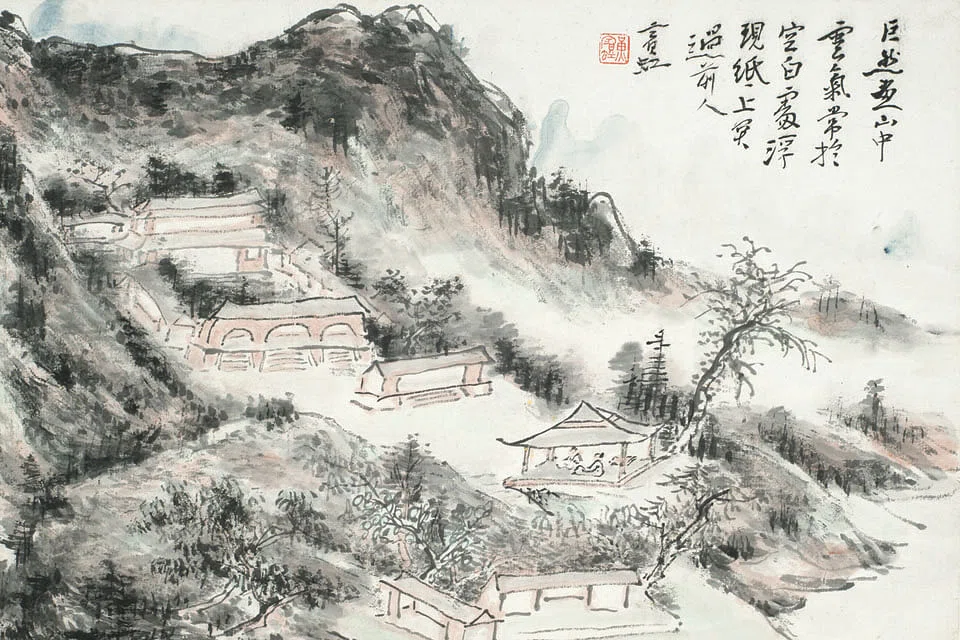 巨然畫山中
雲氣常於
空白處浮
現紙上突
過前人
賓虹
黃賓虹